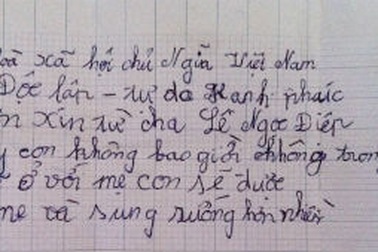 oà xã hội chủ Nghĩa Việt Nam
Độc lập - tự do Hạnh phúc
n xin từ cha Lê Ngọc Điệp
y con không bao giờ không tron
ở với mẹ con sẽ được
mẹ và sung sướng hơn nhiều